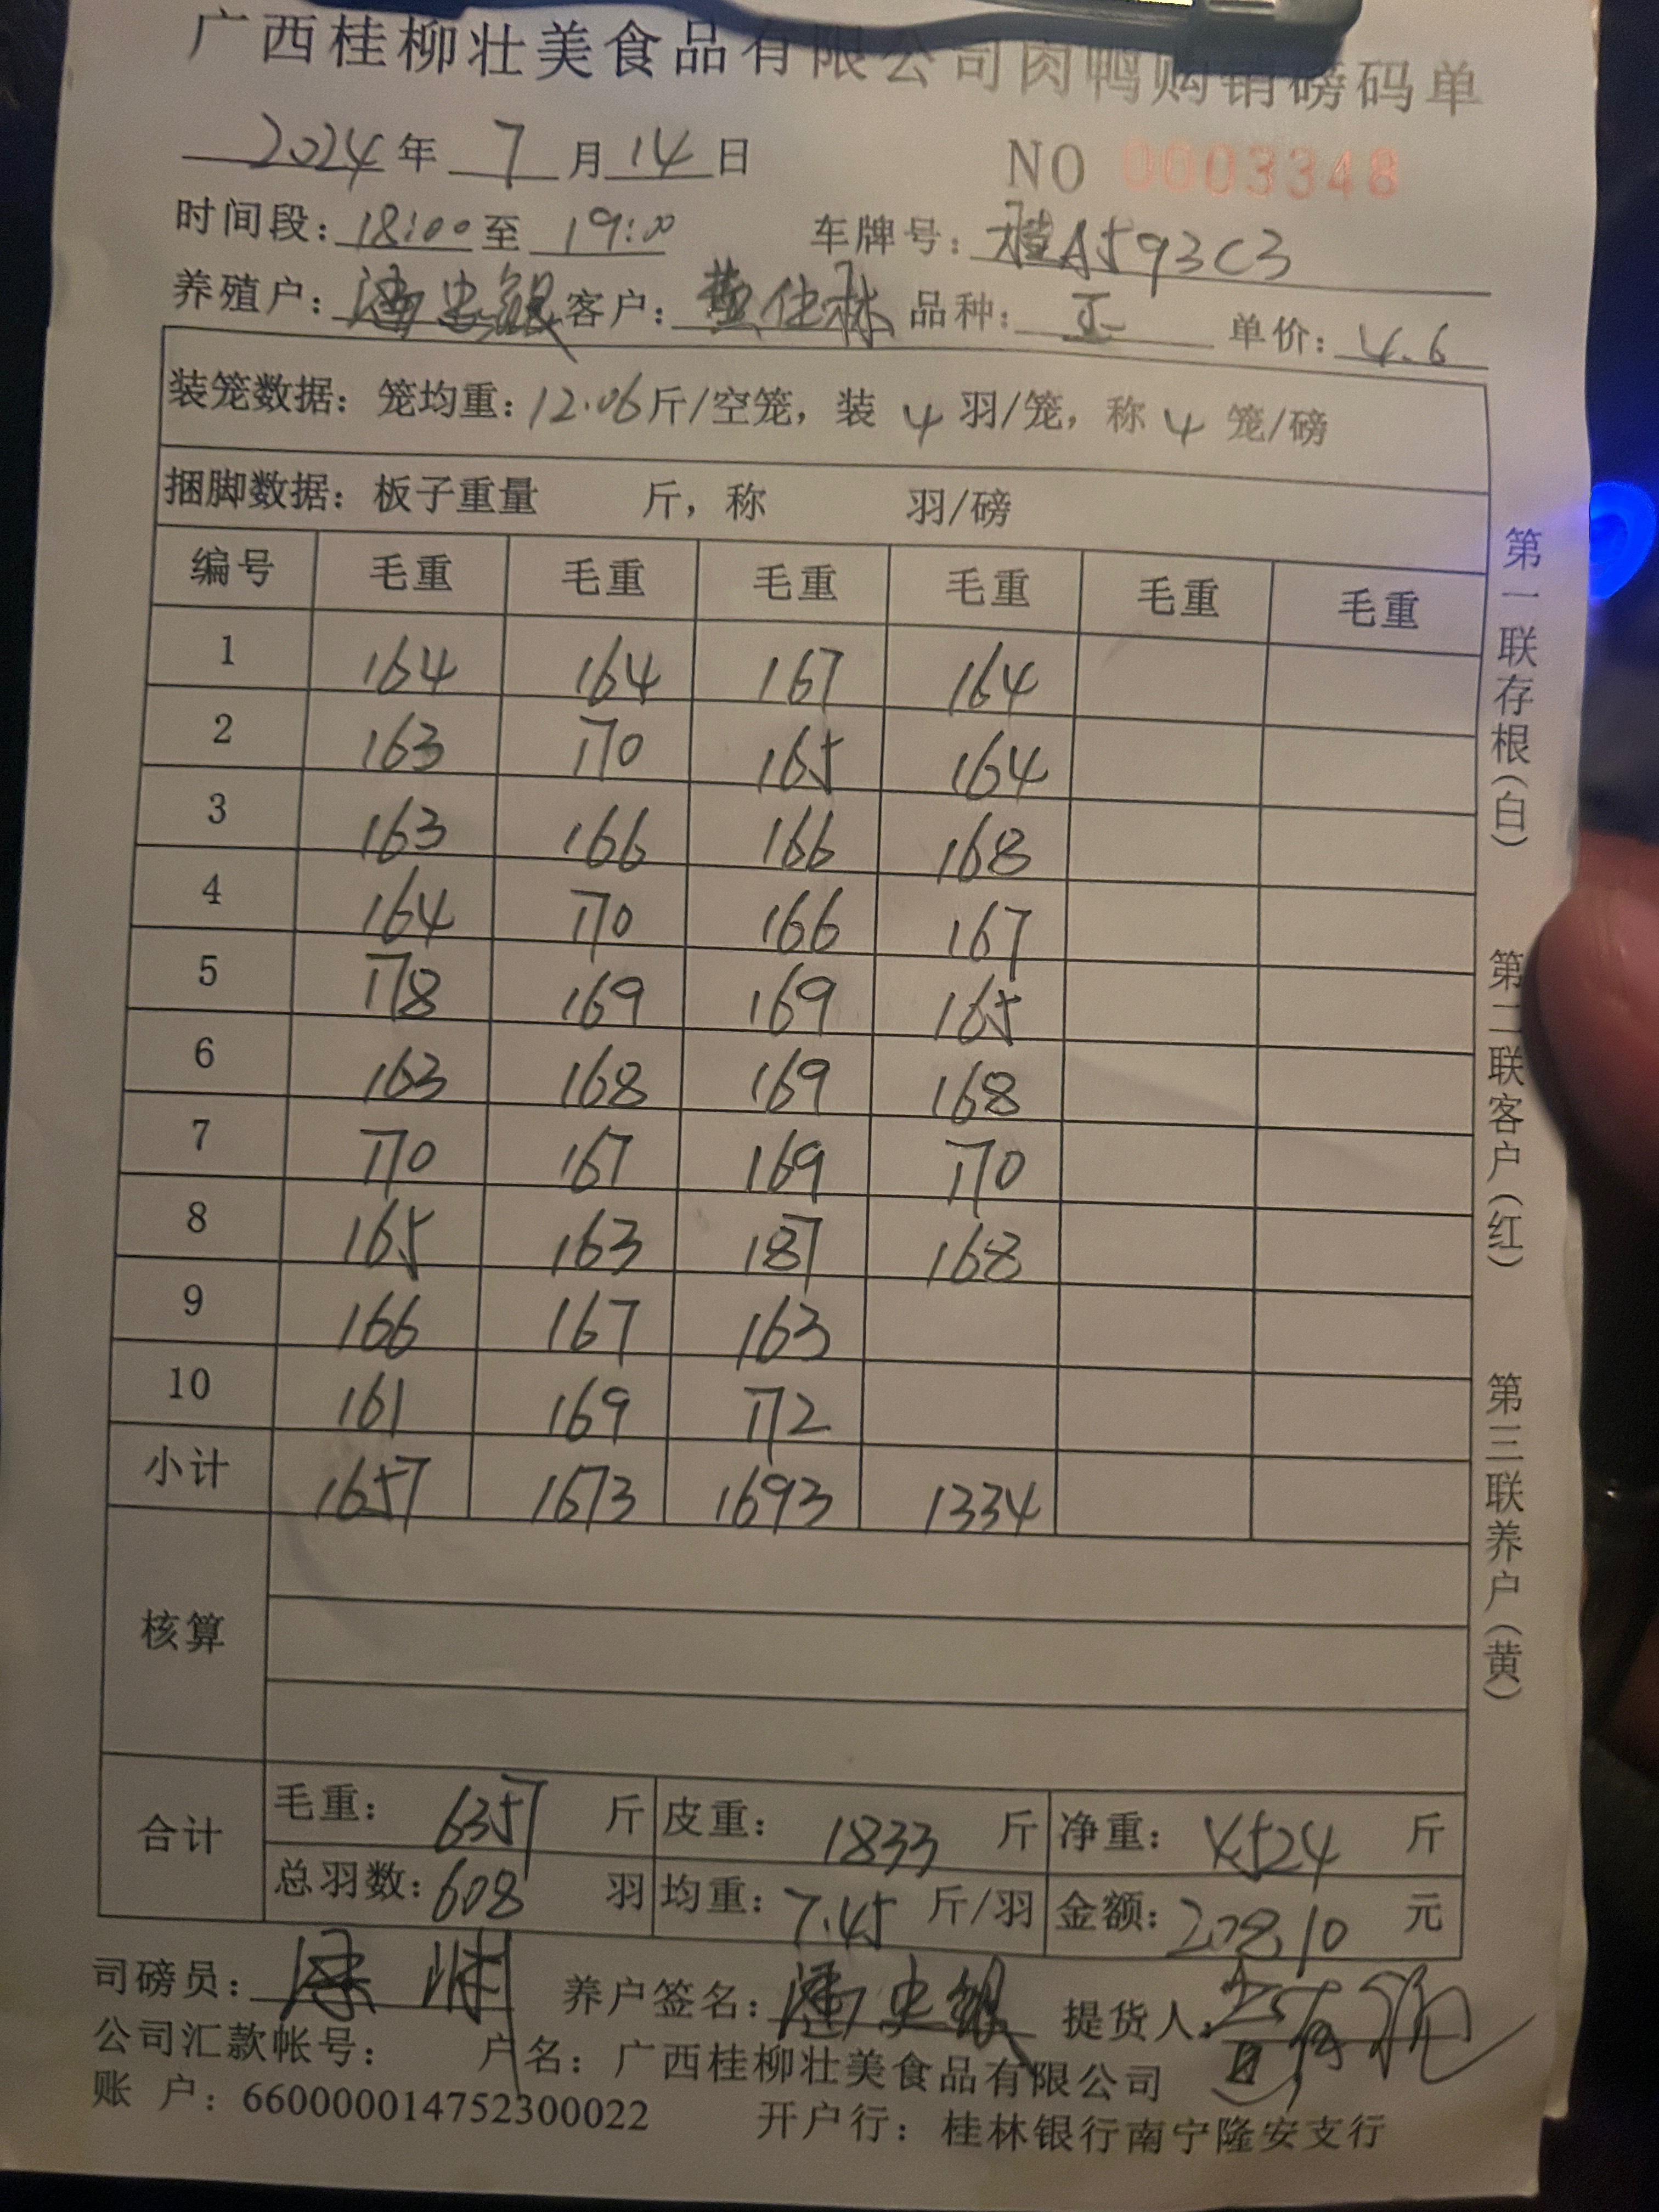 广西桂柳壮美食品有限公司肉鸭购销磅码单
2024年 7 月 14 日 NO 0003348
时间段：18:00 至 19:00 车牌号：桂A593C3
养殖户：潘忠银 客户：黄仕林 品种： 单价：4.6
装笼数据：笼均重：12.06斤/空笼，装 4 羽/笼，称 4 笼/磅
捆脚数据：板子重量 斤，称 羽/磅
编号 毛重 毛重 毛重 毛重 毛重 毛重
1 164 164 167 164
2 163 170 165 164
3 163 166 166 168
4 164 170 166 167
5 178 169 169 165
6 163 168 169 168
7 170 167 169 170
8 165 163 187 168
9 166 167 163
10 161 169 172
小计 1657 1673 1693 1334
核算
合计
毛重：6357 斤 皮重：1833 斤 净重：4524 斤
总羽数：608 羽 均重：7.45 斤/羽 金额：20810 元
司磅员： 养户签名：潘忠银 提货人：
公司汇款帐号： 户名：广西桂柳壮美食品有限公司
账 户：660000014752300022 开户行：桂林银行南宁隆安支行
第一联存根（白） 第二联客户（红） 第三联养户（黄）